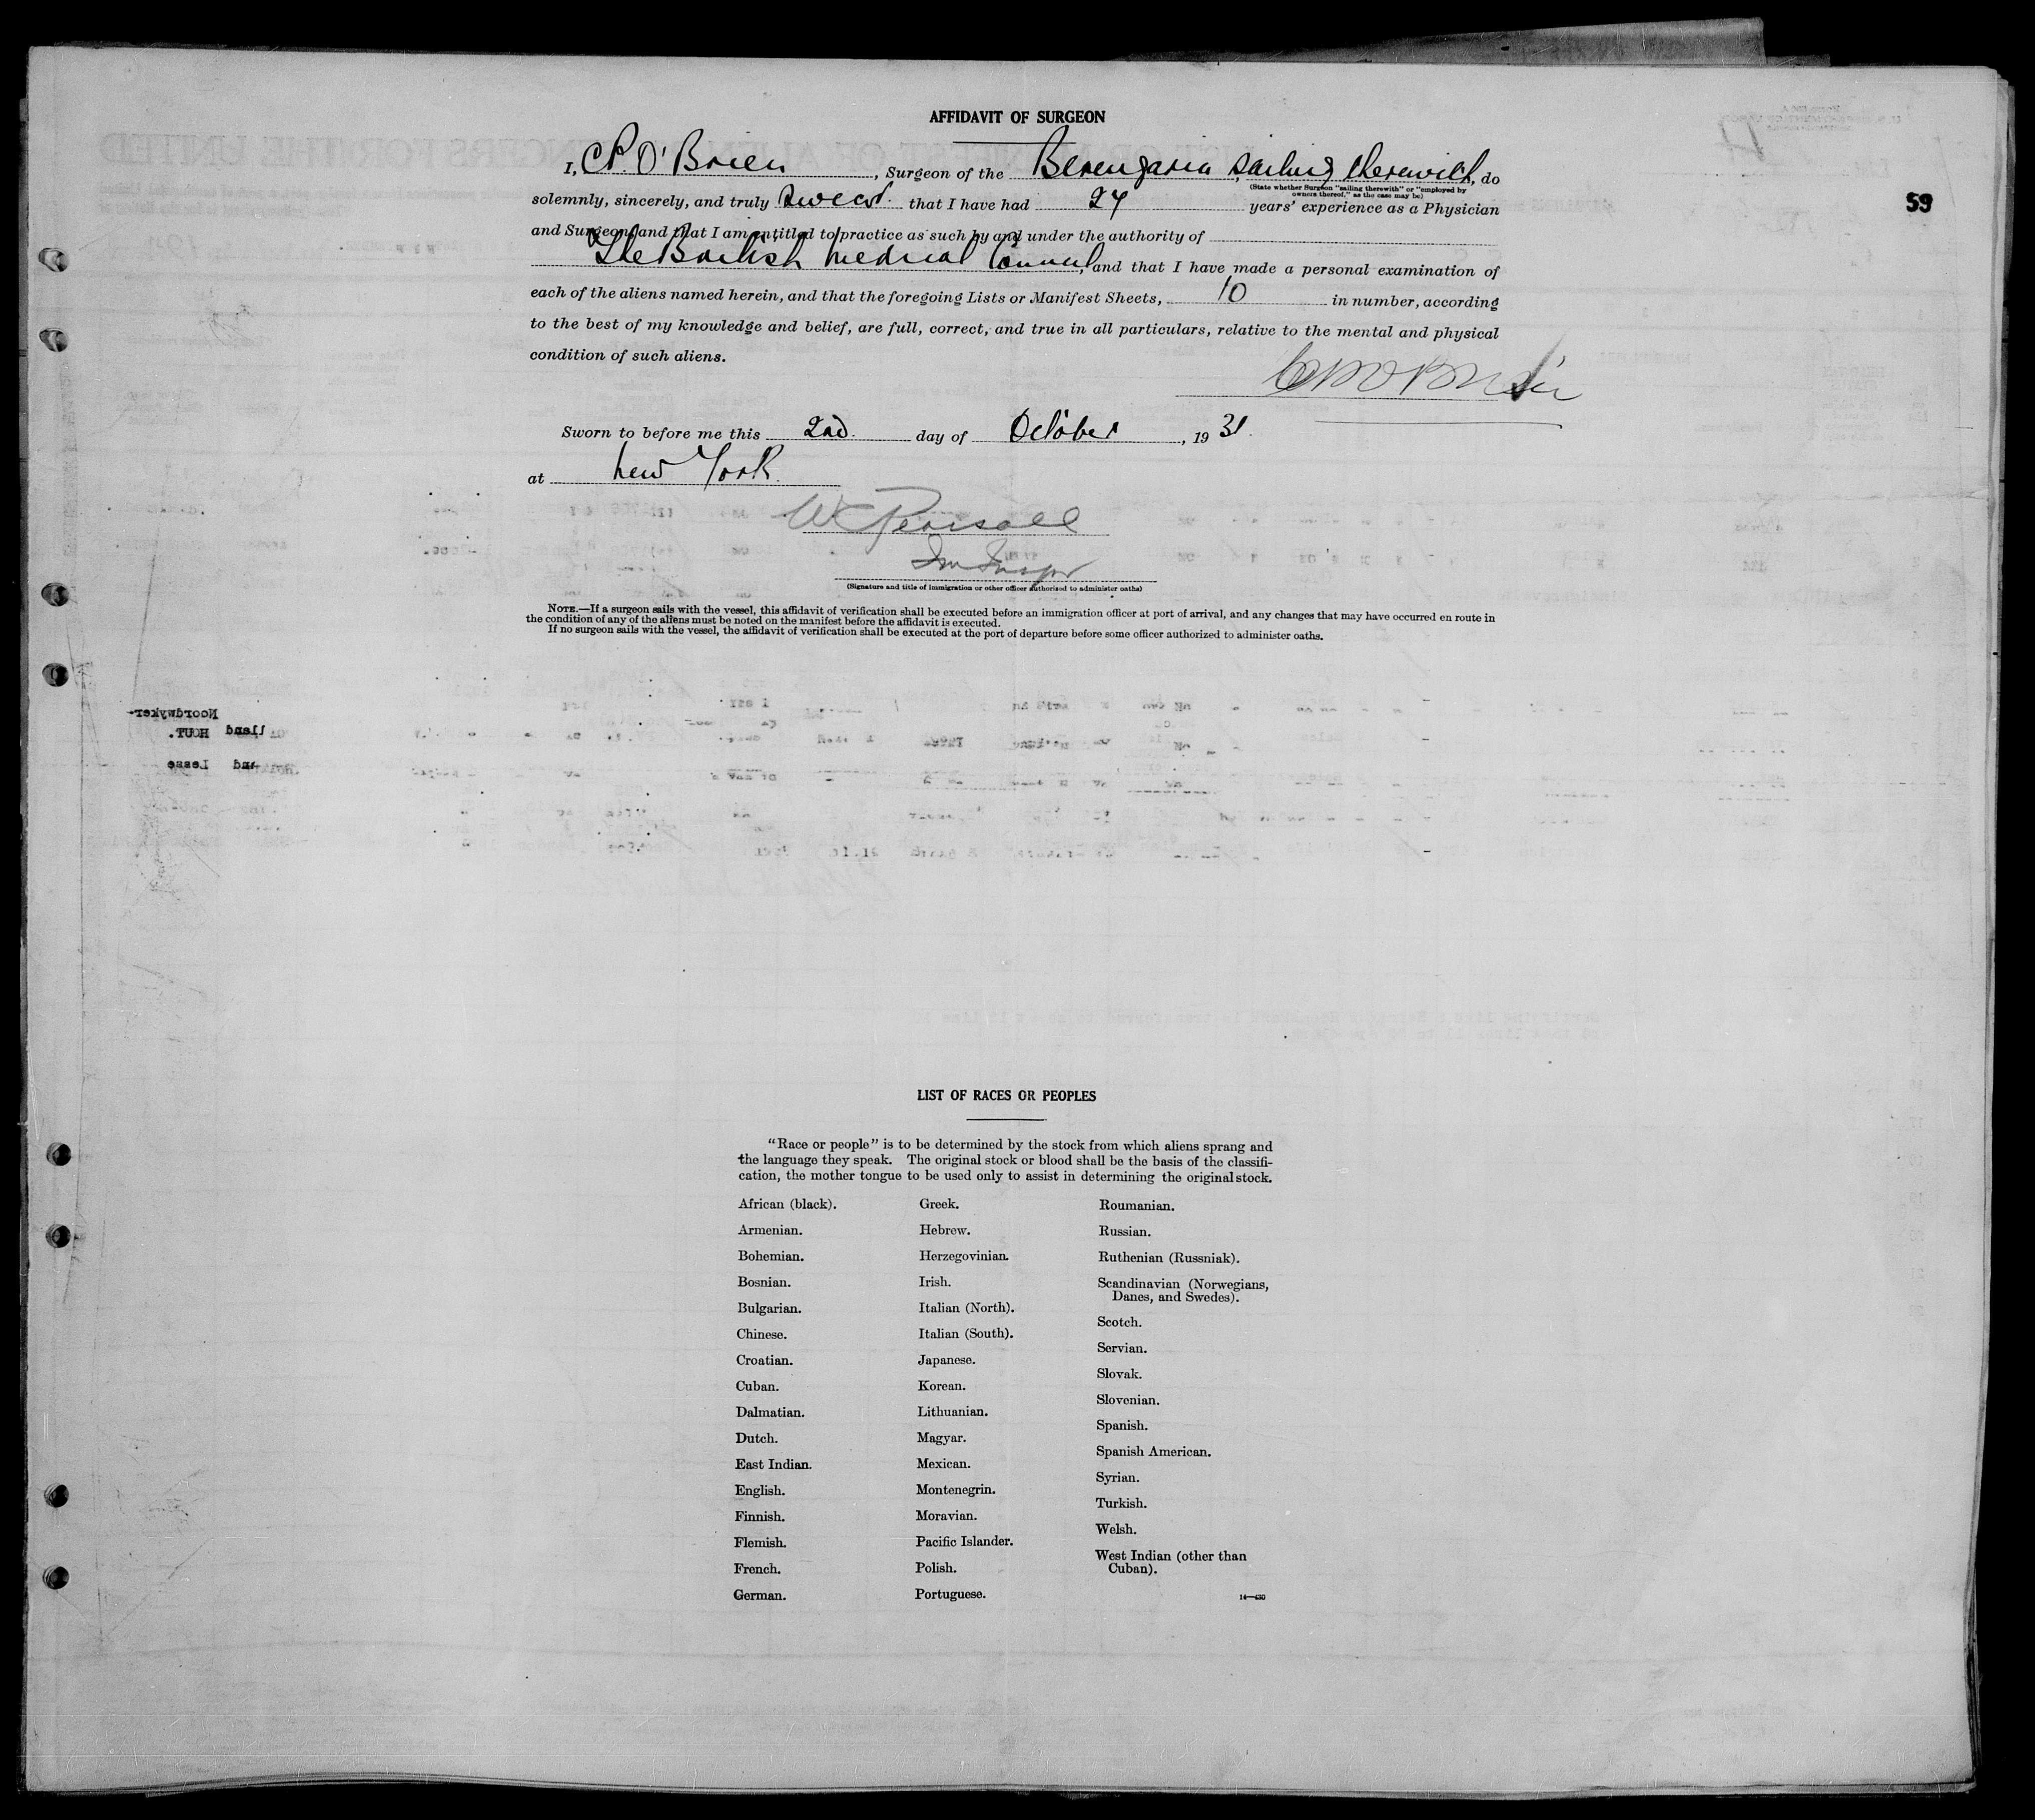 AFFIDAVIT OF SURGEON
I, C.P. O'Brien, Surgeon of the Berengaria sailing therewith, do
(State whether Surgeon "sailing therewith" or "employed by
owners thereof," as the case may be)
solemnly, sincerely, and truly swear that I have had 24 years' experience as a Physician
59
and Surgeon, and that I am entitled to practice as such by and under the authority of
The British Medical Council, and that I have made a personal examination of
each of the aliens named herein, and that the foregoing Lists or Manifest Sheets, 10 in number, according
to the best of my knowledge and belief, are full, correct, and true in all particulars, relative to the mental and physical
condition of such aliens.
CPO'Brien
Sworn to before me this 2nd. day of October, 1931.
at New York.
W Pearsall
Im Inspr
(Signature and title of immigration or other officer authorized to administer oaths)
NOTE.—If a surgeon sails with the vessel, this affidavit of verification shall be executed before an immigration officer at port of arrival, and any changes that may have occurred en route in
the condition of any of the aliens must be noted on the manifest before the affidavit is executed.
If no surgeon sails with the vessel, the affidavit of verification shall be executed at the port of departure before some officer authorized to administer oaths.
Noordwyker-
HOUT. lland
Lesse and
LIST OF RACES OR PEOPLES
"Race or people" is to be determined by the stock from which aliens sprang and
the language they speak. The original stock or blood shall be the basis of the classifi-
cation, the mother tongue to be used only to assist in determining the original stock.
African (black).
Armenian.
Bohemian.
Bosnian.
Bulgarian.
Chinese.
Croatian.
Cuban.
Dalmatian.
Dutch.
East Indian.
English.
Finnish.
Flemish.
French.
German.
Greek.
Hebrew.
Herzegovinian.
Irish.
Italian (North).
Italian (South).
Japanese.
Korean.
Lithuanian.
Magyar.
Mexican.
Montenegrin.
Moravian.
Pacific Islander.
Polish.
Portuguese.
Roumanian.
Russian.
Ruthenian (Russniak).
Scandinavian (Norwegians,
Danes, and Swedes).
Scotch.
Servian.
Slovak.
Slovenian.
Spanish.
Spanish American.
Syrian.
Turkish.
Welsh.
West Indian (other than
Cuban).
14—430